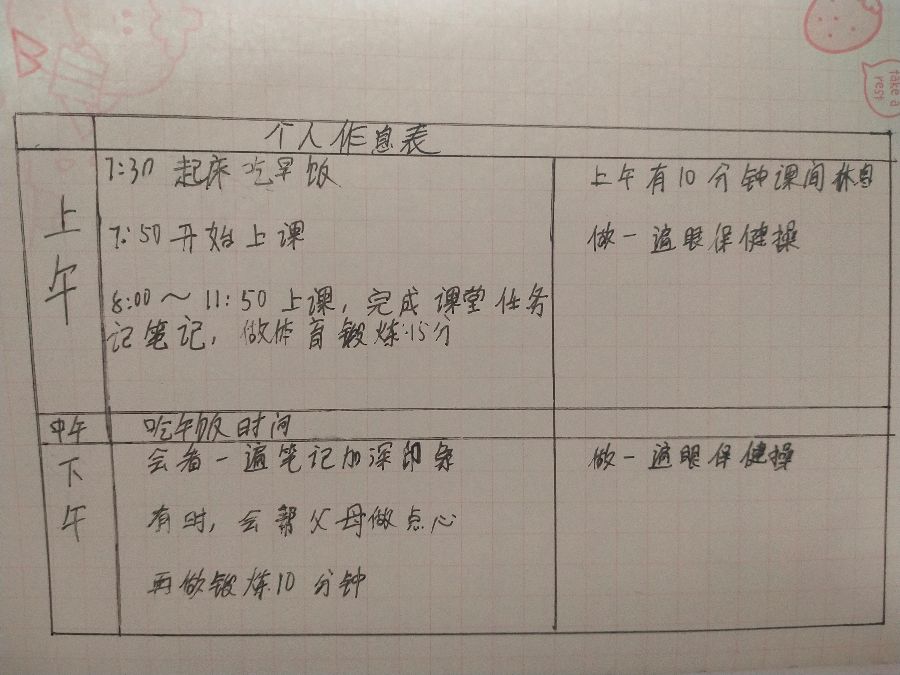 take a
rest
个人作息表
上午
7:30 起床吃早饭
7:50 开始上课
8:00～11:50 上课，完成课堂任务
记笔记，做体育锻炼15分
上午有10分钟课间休息
做一遍眼保健操
中午
吃午饭时间
下午
会看一遍笔记加深印象
有时，会帮父母做点心
再做锻炼10分钟
做一遍眼保健操